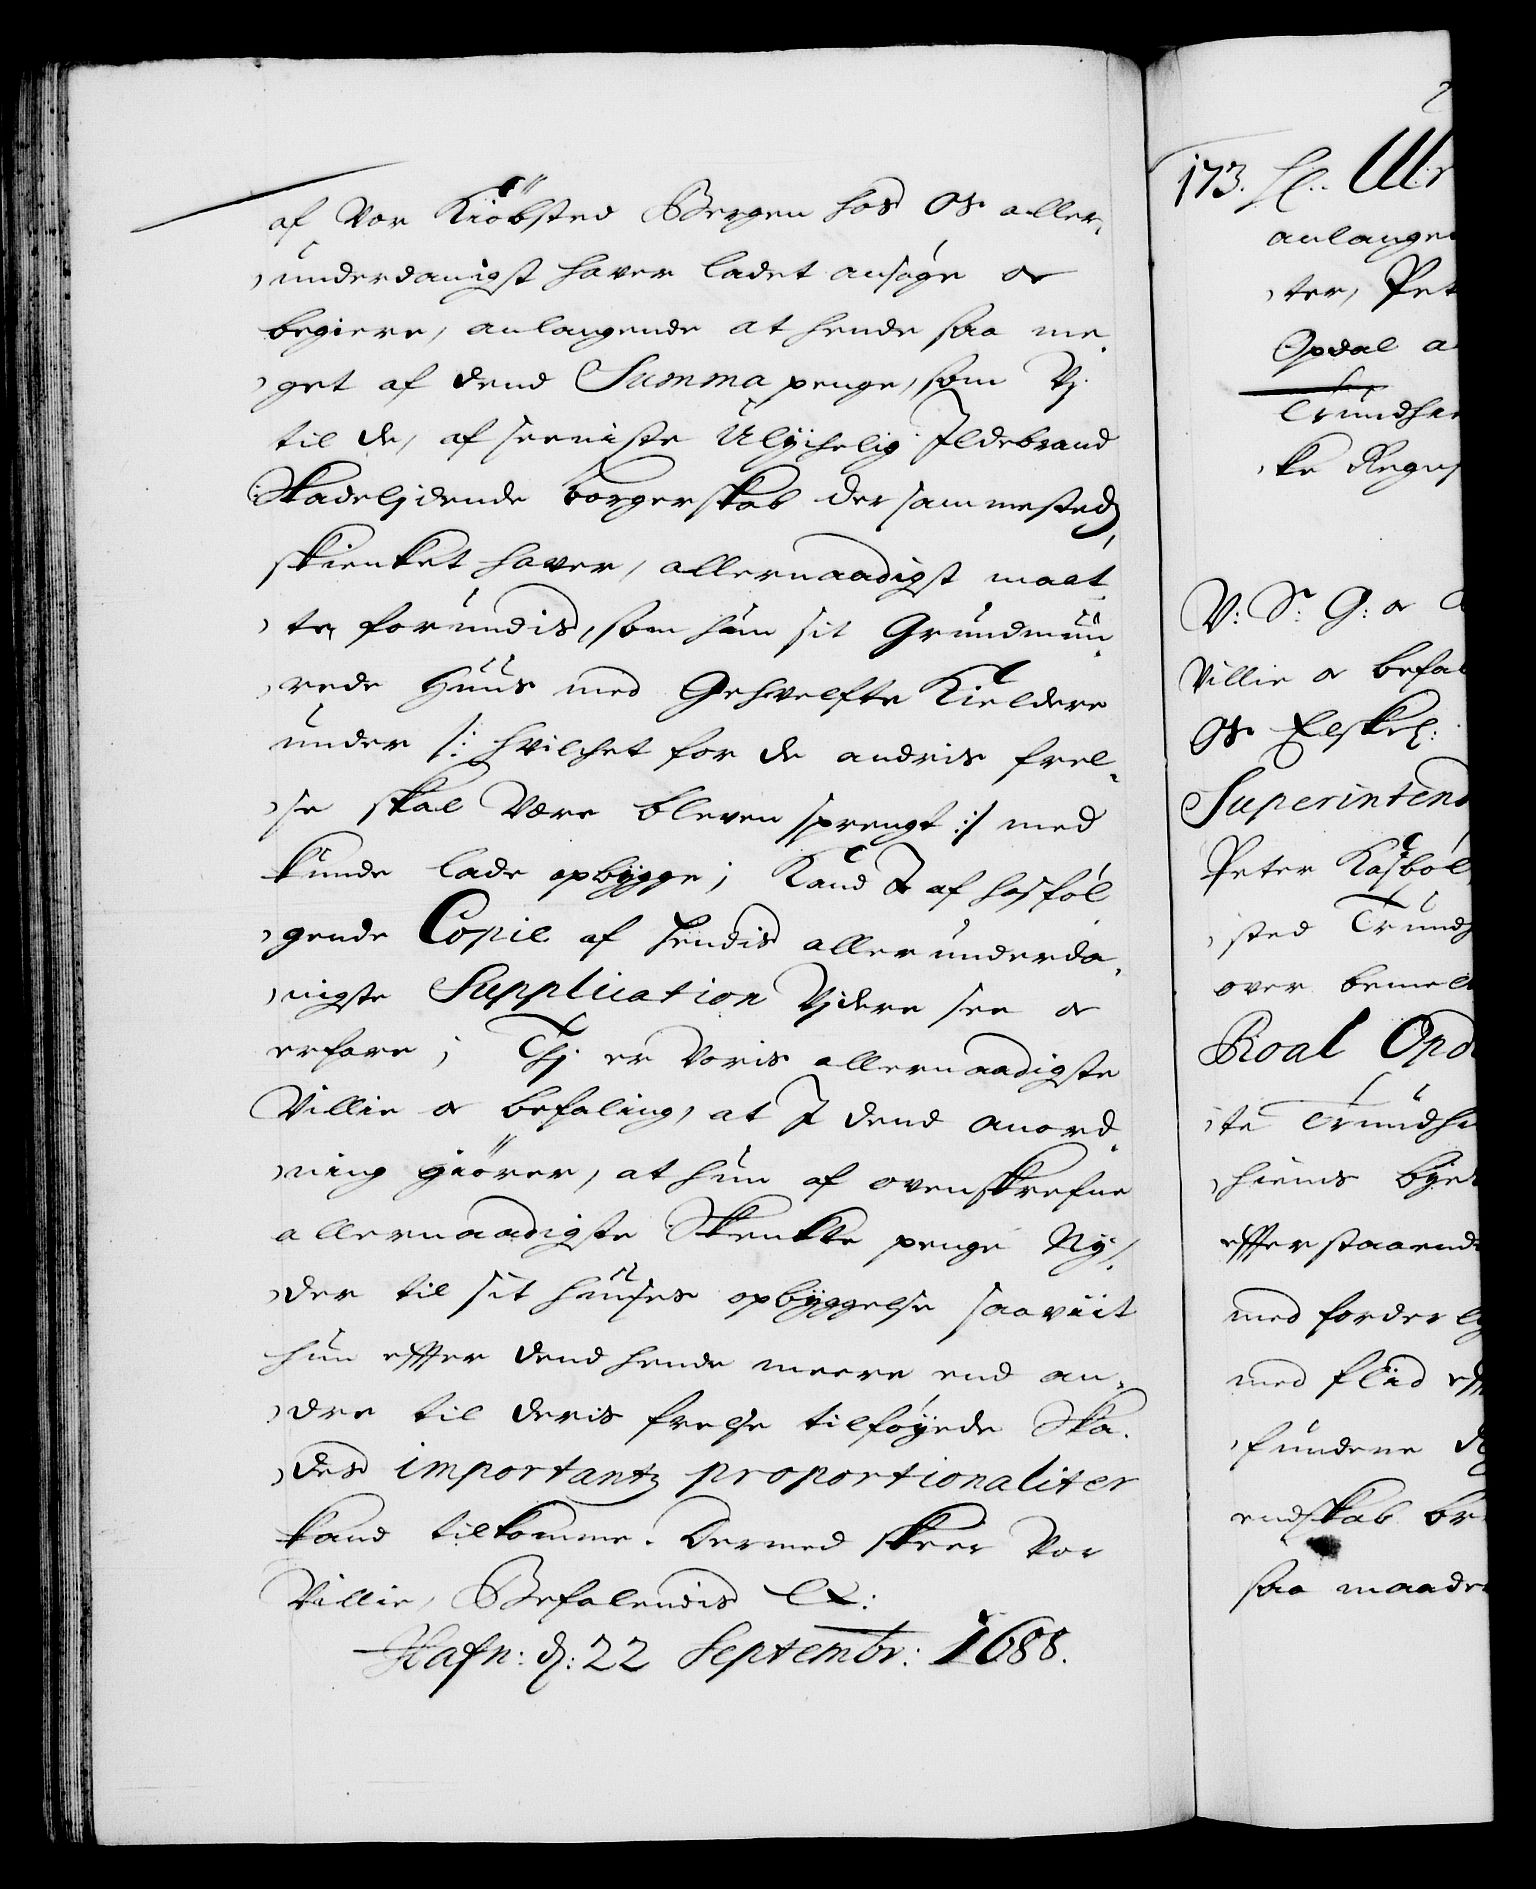 af Vor Kiöbsted Bergen hos Os aller,
underdanigst haver ladet ansøge oc
begiere, anlangende at hende saa me,
get af dend Summa penge, som Vj
til de, af seeniste Ulychelig Ildebrand
Skadeljdende borgerskab dersammesteds,
skienket haver, allernaadigst maat,
te forundis, som hun sit Grundmuu,
rede Huus med Gehvelfte Kieldere
under /: hvilchet for de andris frel,
se skal Være bleven sprengt :/ med
kunde lade opbygge; Kand I af hosföl,
gende Copie af hendis allerunderda,
nigste Supplication Vjdere see oc
erfare; Thj er Voris allernaadigste
Villie oc befaling, at I dend anord,
ning giörer, at hun af ovenskrefne
allernaadigste Skenkte penge Ny,
der til sit huuses opbyggelse saaviit
hun effter dend hende meere end an,
dre til deris frelse tilføyede Ska,
des importantz proportionaliter
kand tilkomme. Dermed skeer Vor
Villie, Befalendis etc:
Hafn: d: 22 Septembr: 1688.
173.
anlangen
ter, Pet
Opdal a
Trundhie
ke Regns
V: S: G: oc
Villie oc befal
Os Elskel:
Superintend
Peter Kasböl
sted Trundh
over bemel
Roal Opd
te Trundhi
hiems bye
effterstaaende
med forderl
med fliid eff
fundene
endskab br
saa maade